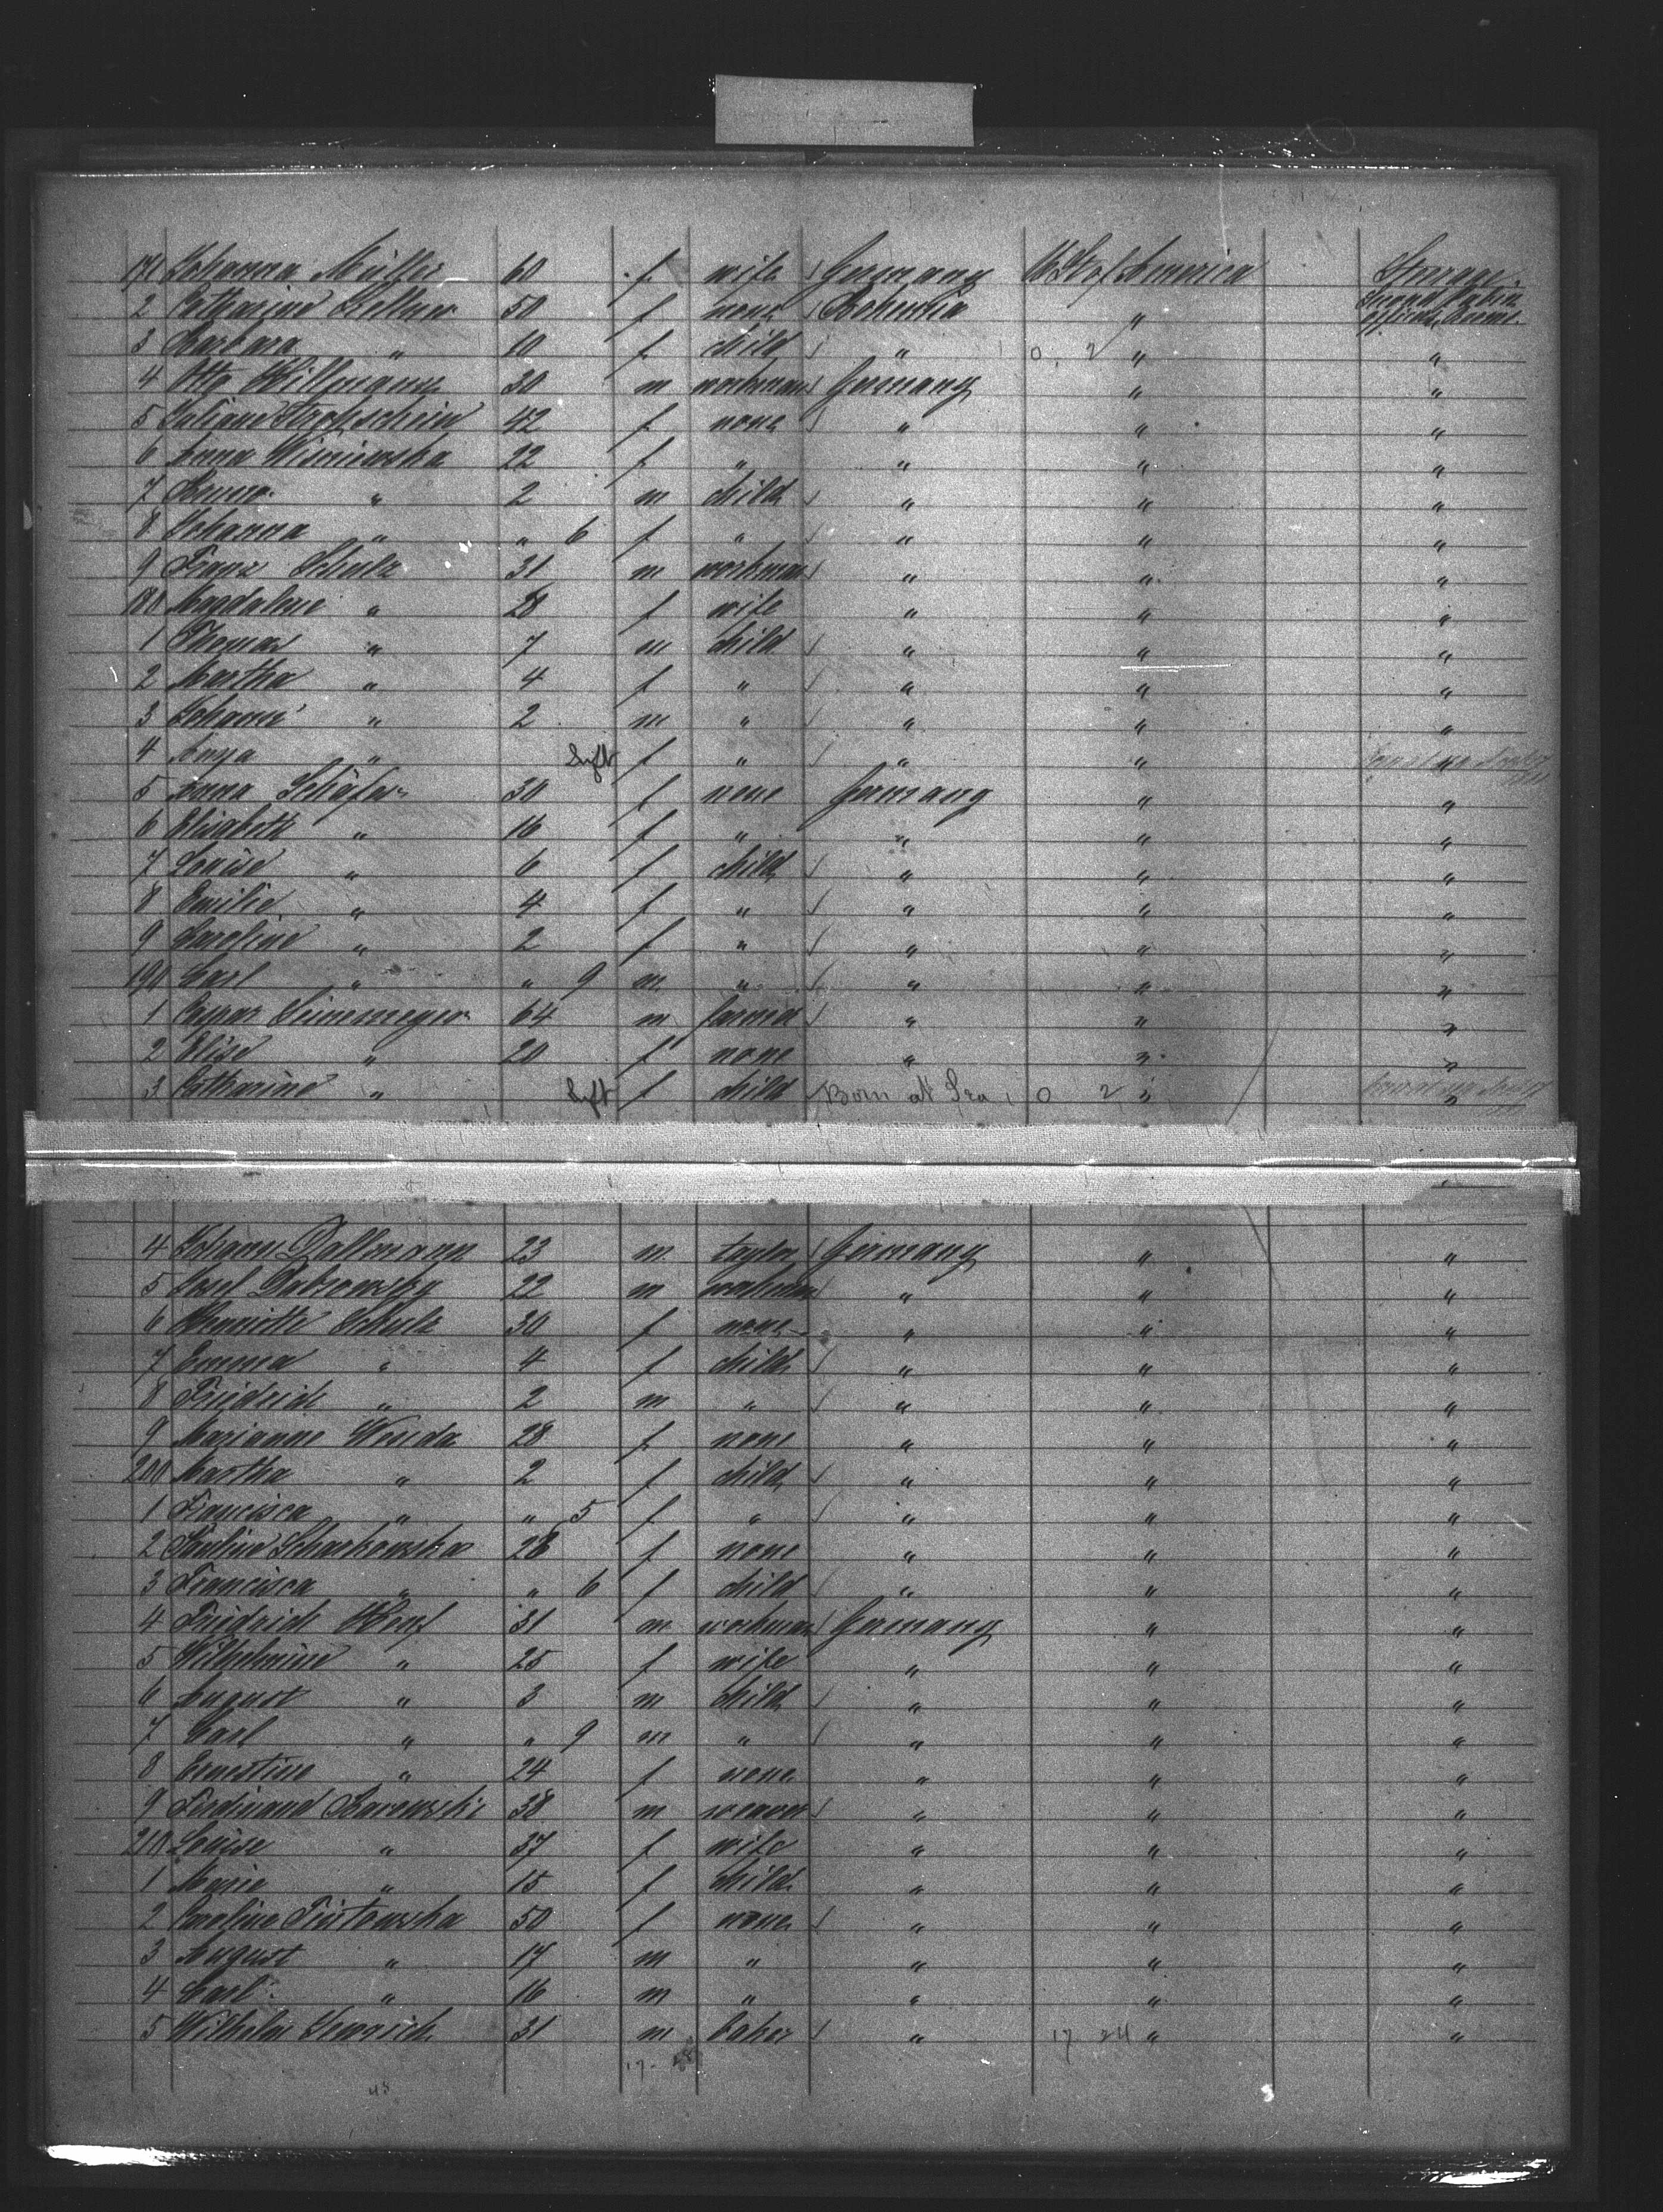 171 Johanna Müller 60 f wife Germany U. St. of America Steerage
2 Catharine Kellner 50 f none Bohemia "
3 Barbara " 10 f child " 0 2 " "
4 Otto Hillmann 30 m workman Germany " "
5 Juliane Strohschein 42 f none " " "
6 Anna Wisniewska 22 f " " " "
7 " 2 m child " " "
8 Johanna " " 6 f " " " "
9 Franz Schulz 31 m workman " " "
180 Magdalene " 28 f wife " " "
1 Thomas " 7 m child " " "
2 Martha " 4 f " " " "
3 Johann " 2 m " " " "
4 " f " " " "
5 Anna Schäfer 30 f none Germany " "
6 Elisabeth " 16 f " " " "
7 Louise " 6 f child " " "
8 Emilie " 4 f " " " "
9 Caroline " 2 f " " " "
190 Carl " " 9 m " " " "
1 Caspar 64 m farmer " " "
2 Elise " 20 f none " " "
3 Catharine " f child Born at Sea 0 2 " "
4 Johann Dallmann 23 m taylor Germany " "
5 Josef Dabrowsky 22 m workman " " "
6 Henriette Schulz 30 f none " " "
7 Emma " 4 f child " " "
8 Friedrich " 2 m " " " "
9 Marianne 28 f none " " "
200 Martha " 2 f child " " "
1 Francisca " " 5 f " " " "
2 Pauline Scharkowska 28 f none " " "
3 Francisca " " 6 f child " " "
4 Friedrich 31 m workman Germany " "
5 Wilhelmine " 25 f wife " " "
6 August " 3 m child " " "
7 Carl " " 9 m " " " "
8 Ernestine " 24 f none " " "
9 Ferdinand 38 m weaver " " "
210 Louise " 37 f wife " " "
1 Marie " 15 f child " " "
2 Caroline 50 f none " " "
3 August " 17 m " " " "
4 Carl " 16 m " " " "
5 Wilhelm 31 m baker " 17 24 " "